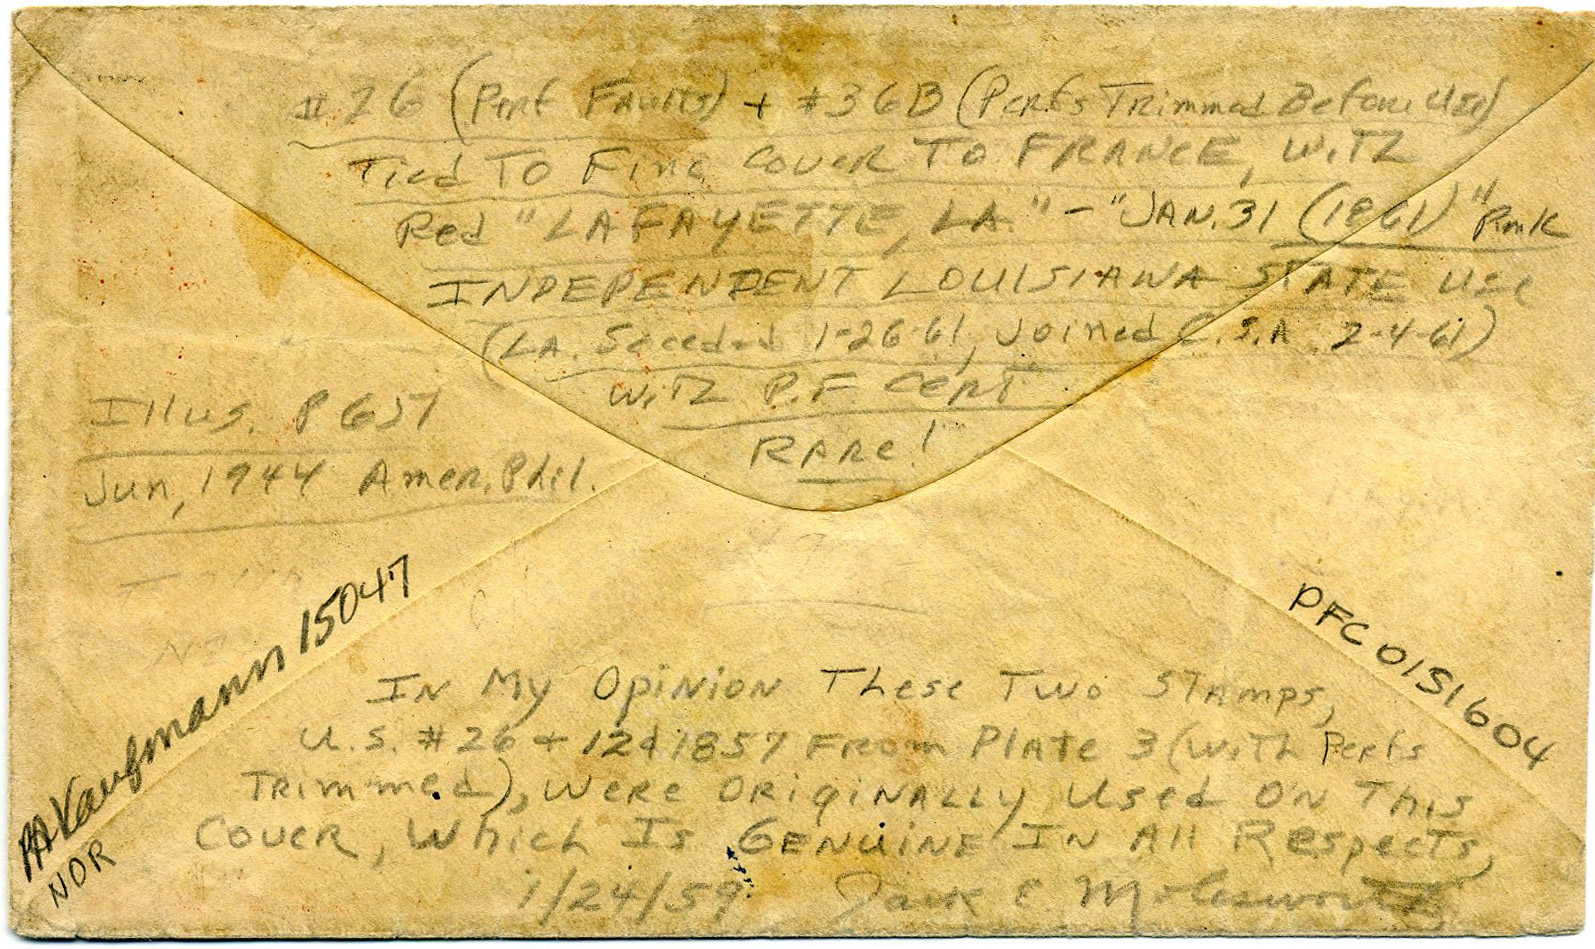 #26 (Perf Faults) + #36B (Perfs Trimmed Before Use)
Tied To Fine Cover To FRANCE, WiTh
Red "LAFAYETTE, LA." - "JAN. 31 (1861)" Pmk
INDEPENDENT LOUISIANA STATE Use
(LA. Seceded 1-26-61, Joined C.S.A. 2-4-61)
WiTh P.F. Cert
RARe!
Illus. P 657
Jun, 1944 Amer. Phil.
PA Kaufmann 15047
NDR
PFC 0151604
In My Opinion These Two Stamps,
U.S. #26 + 12¢ 1857 From Plate 3 (With Perfs
Trimmed), Were Originally Used On This
Cover, Which Is Genuine In All Respects,
1/24/59. Jack E Molesworth